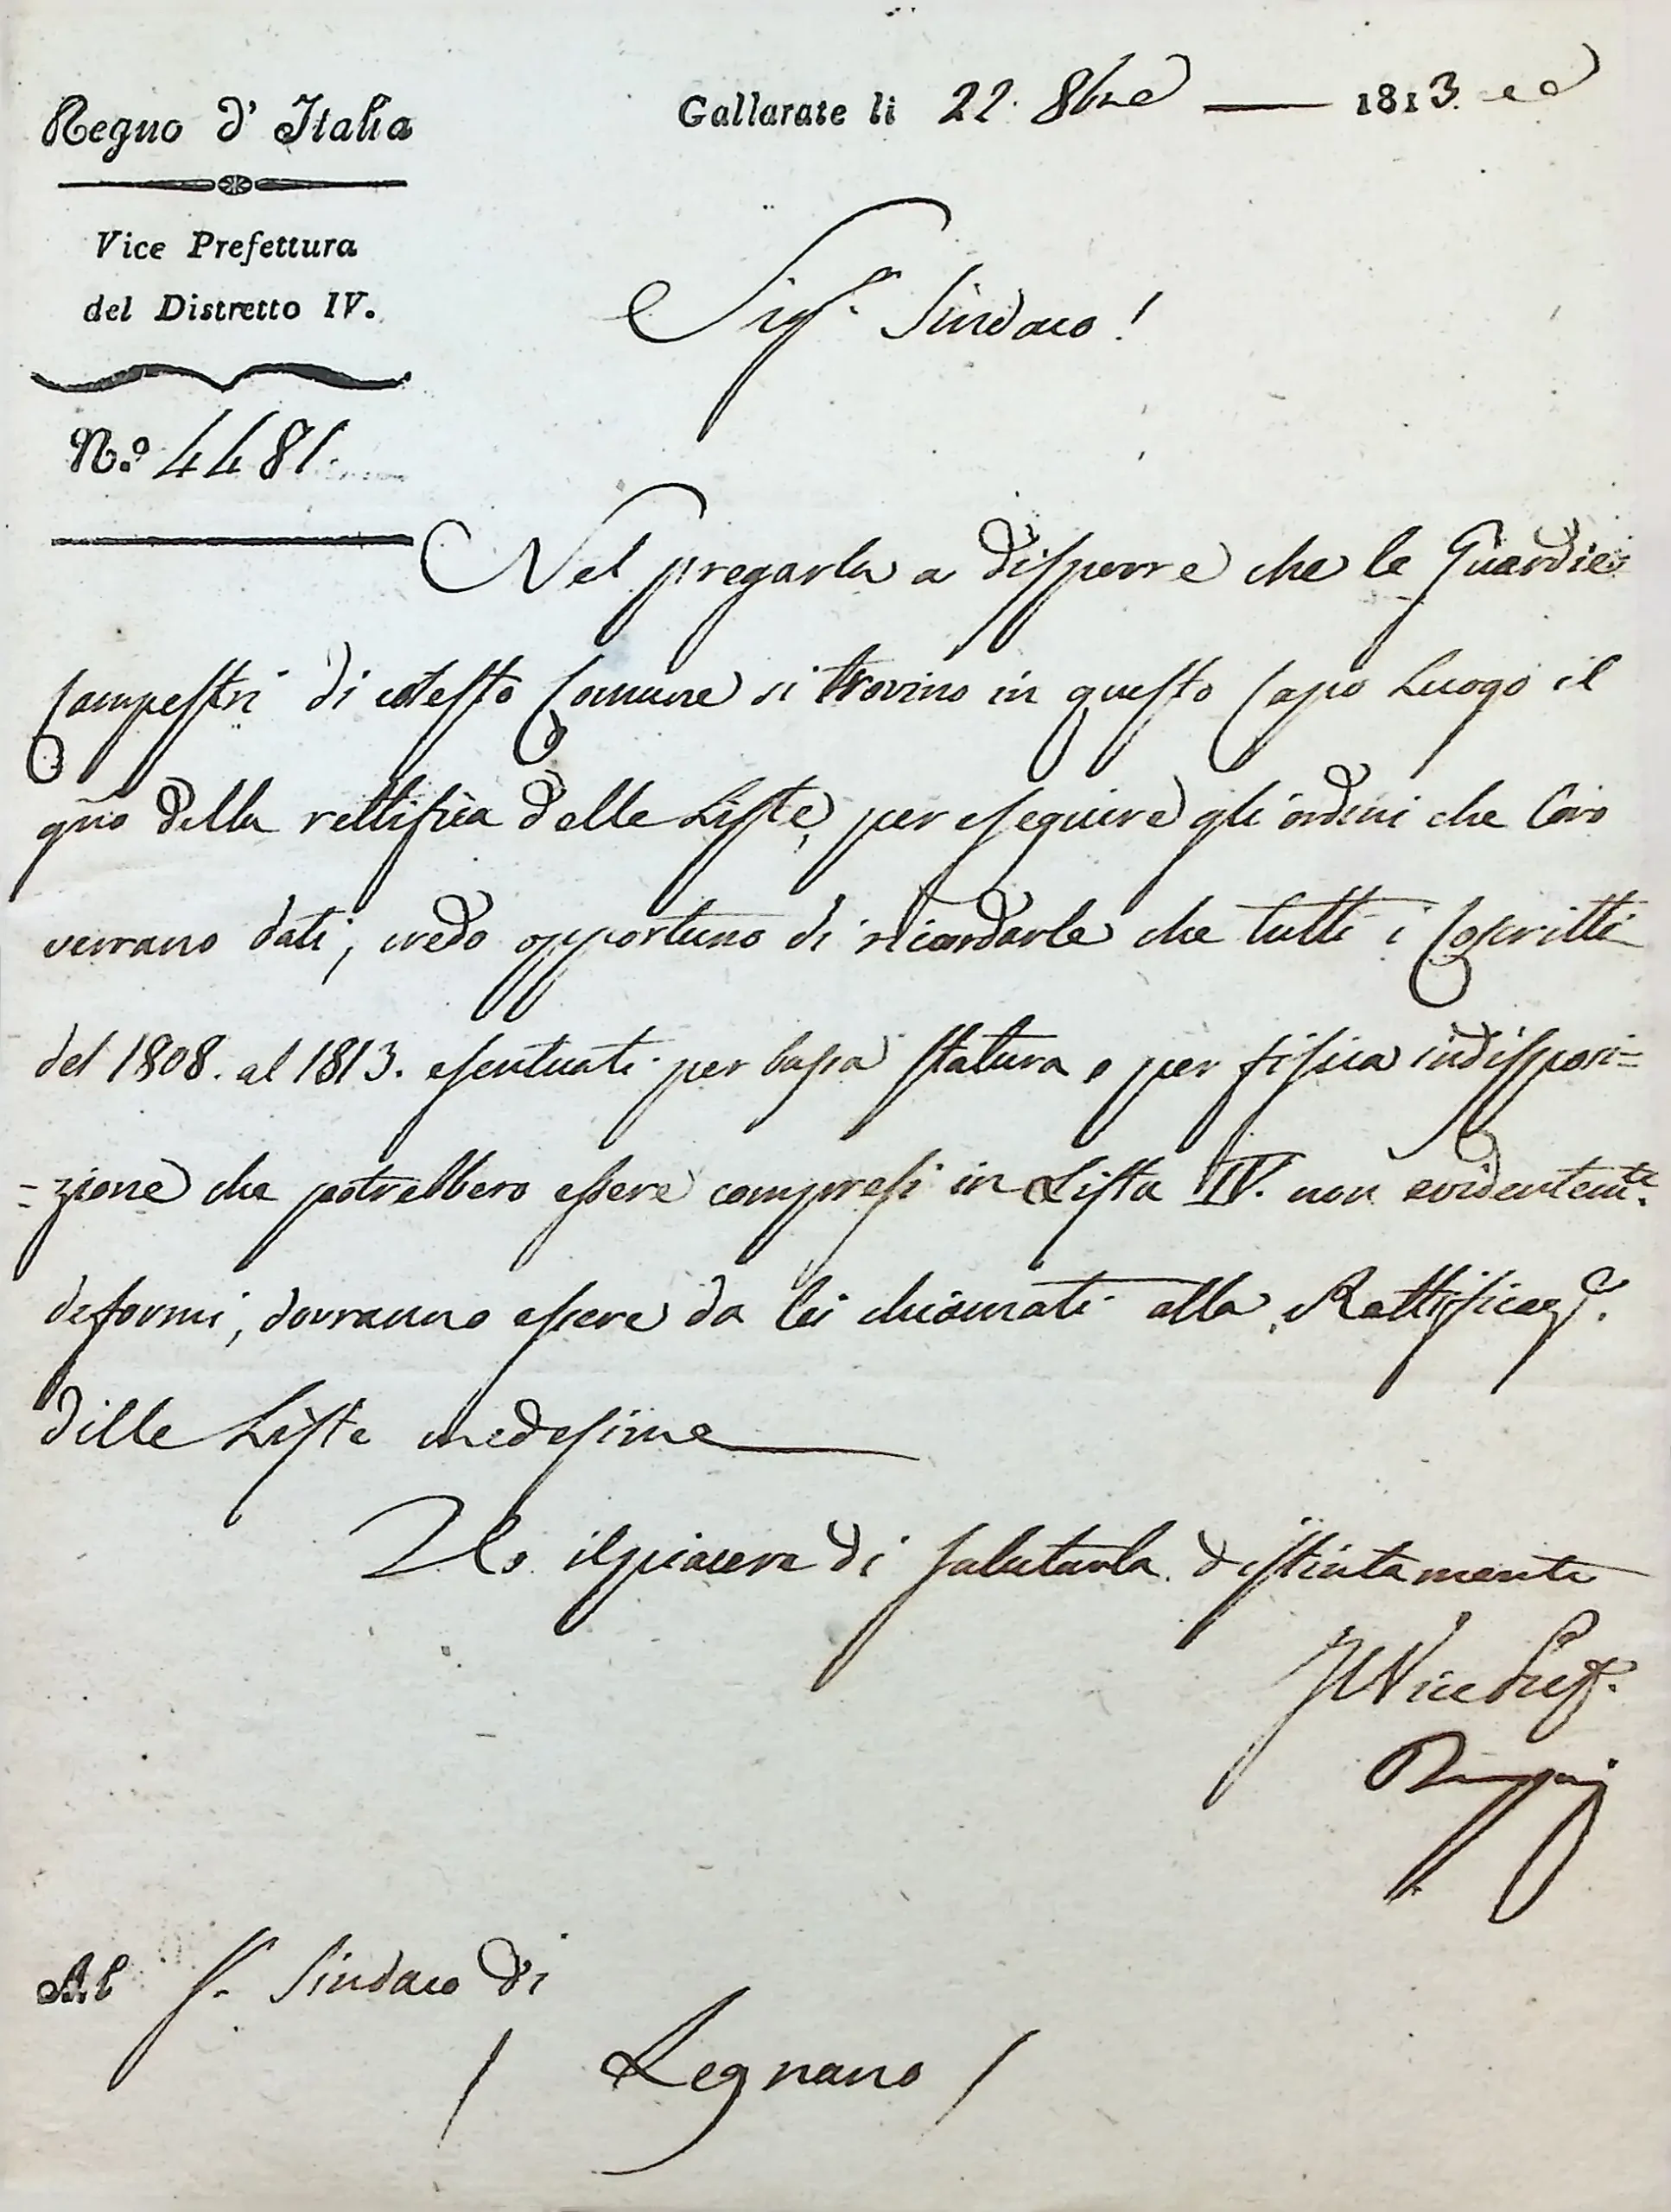 Regno d' Italia
Vice Prefettura
del Distretto IV.
N.º 4481.
Gallarate li 22. 8bre — 1813.
Sig.r Sindaco!
Nel pregarla a disporre che le Guardie
Campestri di cotesto Comune si trovino in questo Capo Luogo il
gno della rettifica delle Liste, per eseguire gli ordini che Loro
verrano dati, credo opportuno di ricordarle che tutti i Coscritti
del 1808. al 1813. esentuati per bassa statura o per fisica indisposi=
=zione che potrebbero essere compresi in Lista IV. non evidentem.te
deformi, dovranno essere da lei chiamati alla Rettificaz.e
delle Liste medesime
Ho il piacere di salutarla distintamente
Il Vice Pref.
Al S.r Sindaco di
/ Legnano /